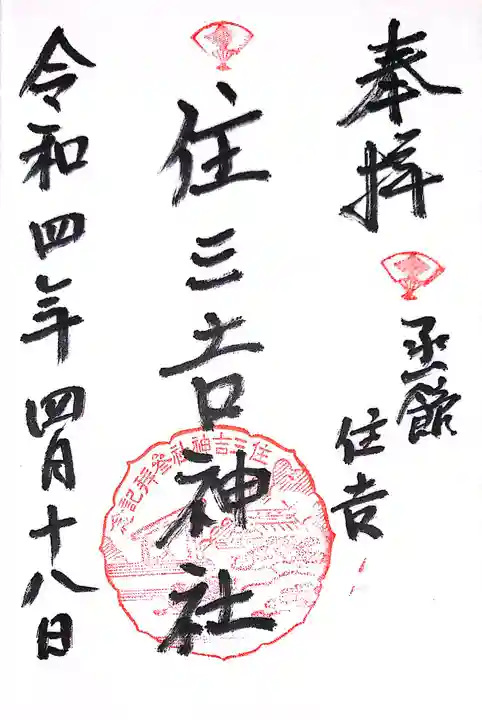 奉拝
函館
住吉
住三吉神社
住三吉神社参拝記念
令和四年四月十八日